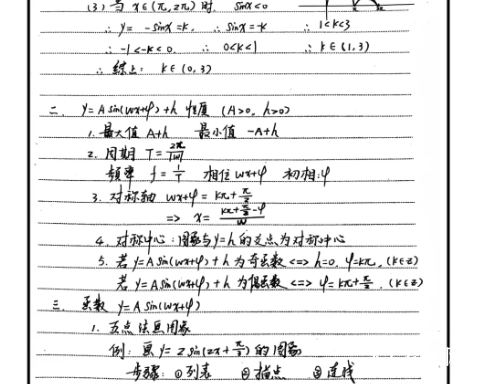 (3) 当 x∈(π,2π) 时, sinx<0
∴ y= -sinx=k. ∴ sinx=-k ∴ 1<k<3
∴ -1<-k<0. ∴ 0<k<1 ∴ k∈(1,3)
∴ 综上: k∈(0,3)
二. y=Asin(wx+φ)+h 性质 (A>0, h>0)
1. 最大值 A+h 最小值 -A+h
2. 周期 T=2π/|w|
频率 f=1/T 相位 wx+φ 初相:φ
3. 对称轴 wx+φ=kπ+π/2
=> x=(kπ+π/2-φ)/w
4. 对称中心:图象与y=h的交点为对称中心
5. 若 y=Asin(wx+φ)+h 为奇函数 <=> h=0, φ=kπ. (k∈z)
若 y=Asin(wx+φ)+h 为偶函数 <=> φ=kπ+π/2. (k∈z)
三. 函数 y=Asin(wx+φ)
1. 五点法画图象
例: 画 y=2sin(2x+π/3) 的图象
步骤: ①列表 ②描点 ③连线